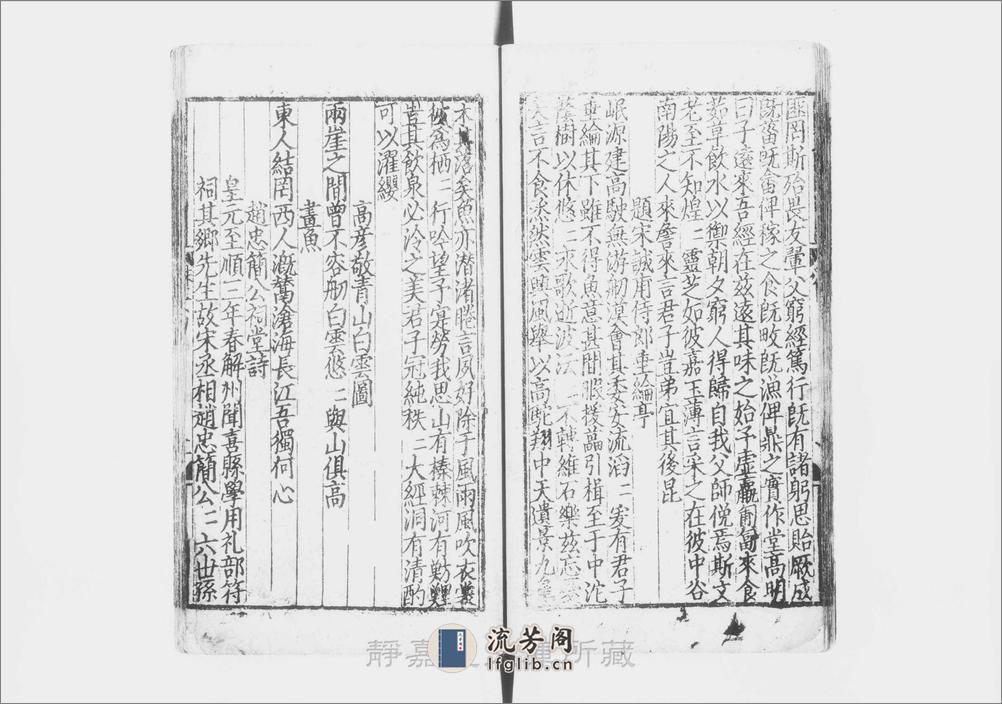 匪罔斯殆畏友翬父窮經篤行旣有諸躬思貽厥成
旣菑旣畬俾稼之食旣畋旣漁俾鼎之實作堂高明
曰子遠來吾經在茲遠其味之始子虛羸匍匐來食
茹草飲水以禦朝夕窮人得歸自我父師俛焉斯文
老至不知煌二靈芝如彼嘉玉薄言采之在彼中谷
南陽之人來詹來言君子豈弟宜其後昆
題宋誠甫侍郎垂綸亭
岷源建高駛無游舠漠會其委安流滔二爰有君子
垂綸其下雖不得魚意甚閒暇援藟引楫至于中沱
蔭樹以休悠二永歌逝波沄二不轉維石樂茲忘
言不食烝然雲興風舉以高駝翔中天遺景九
木其落矣魚亦潛渚睠言夙好除于風雨風吹衣裳
彼為栖二行吟望予寔勞我思山有榛棘河有魴鯉
豈其飲泉必泠之美君子冠純秩二大經洞有清酌
可以濯纓
高彥敬青山白雲圖
兩崖之間曾不容舠白雲悠二與山俱高
畫魚
東人結罔西人漑鬵滄海長江吾獨何心
趙忠簡公祠堂詩
皇元至順三年春解州聞喜縣學用礼部符
祠其鄉先生故宋丞相趙忠簡公二六世孫
靜嘉 所藏
流芳阁
lfglib.cn